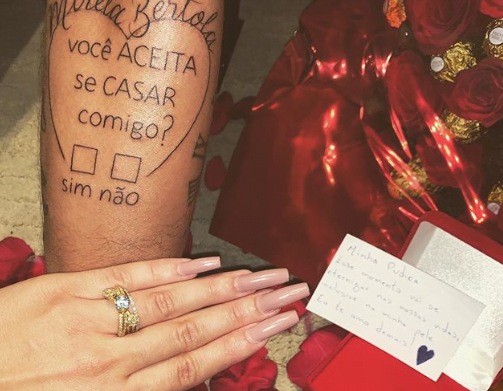 Mirela Bertola
você ACEITA
se CASAR
comigo?
sim não
Minha Pudica
Esse momento vai se
eternizar nas nossas vidas,
inclusive na minha pele
Eu te amo demais!